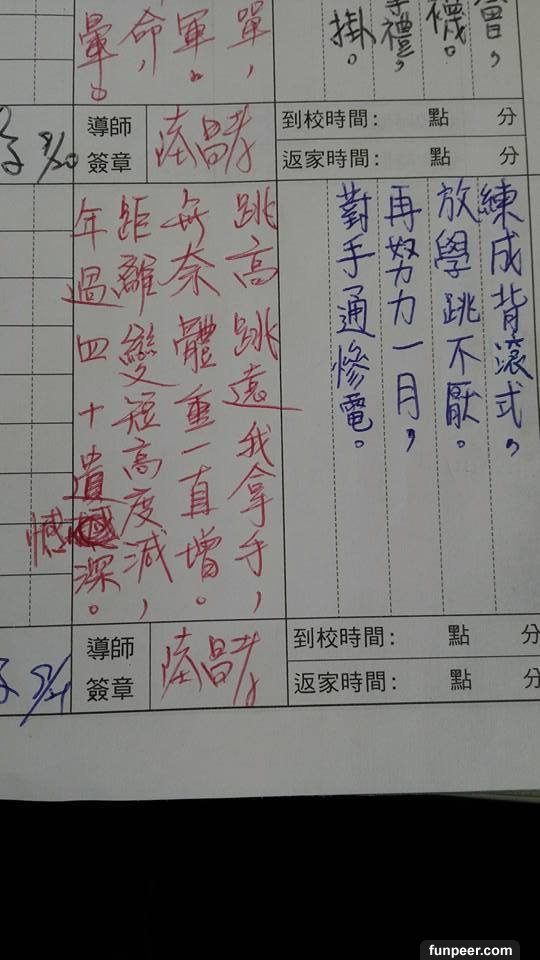 襪。
禮，
掛。
單，
軍。
命，
暈。
到校時間： 點 分
返家時間： 點 分
導師
簽章
練成背滾式，
放學跳不厭。
再努力一月，
對手通慘電。
跳高跳遠我拿手，
無奈體重一直增。
距離變短高度減，
年過四十遺憾深。
到校時間： 點 分
返家時間： 點 分
導師
簽章
funpeer.com